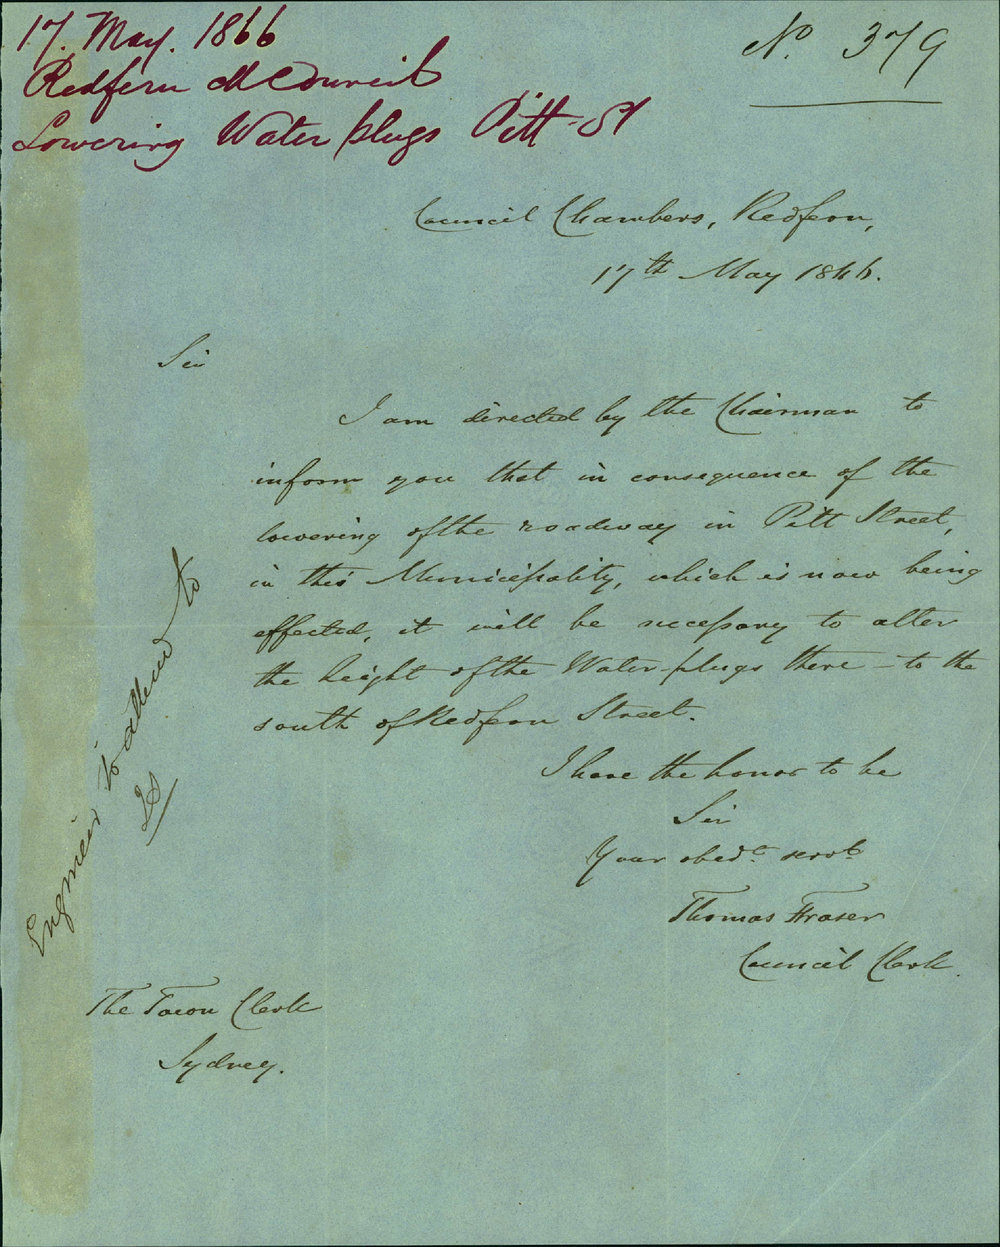 17. May. 1866
Redfern M Council
Lowering Water plugs Pitt-St
No. 379
Council Chambers, Redfern,
17th May 1866.
Sir
I am directed by the Chairman to
inform you that in consequence of the
lowering of the roadway in Pitt Street,
in this Municipality, which is now being
effected, it will be necessary to alter
the height of the Water-plugs there – to the
south of Redfern Street.
I have the honor to be
Sir
Your obedt. servt.
Thomas Fraser
Council Clerk.
The Town Clerk
Sydney.
Engineer to attend to